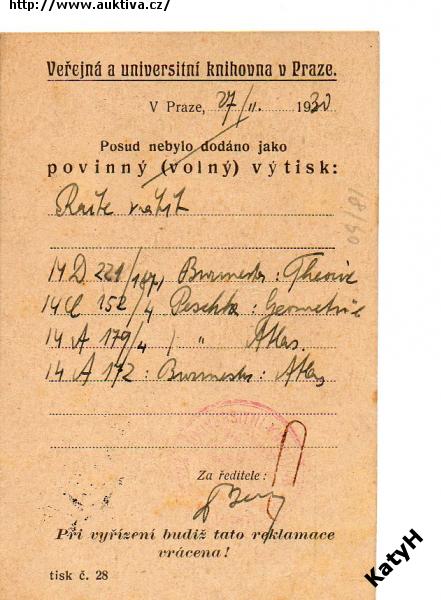 http://www.auktiva.cz/
Veřejná a universitní knihovna v Praze.
V Praze, 27/II. 1930
Posud nebylo dodáno jako
povinný (volný) výtisk:
Račte vrátit
14 D 221/1871 Burmester: Theorie
14 C 152/4 Peschka: Geometrie
14 A 179/4 / " Atlas.
14 A 172: Burmester: Atlas
Za ředitele:
Při vyřízení budiž tato reklamace
vrácena!
tisk č. 28
KatyH